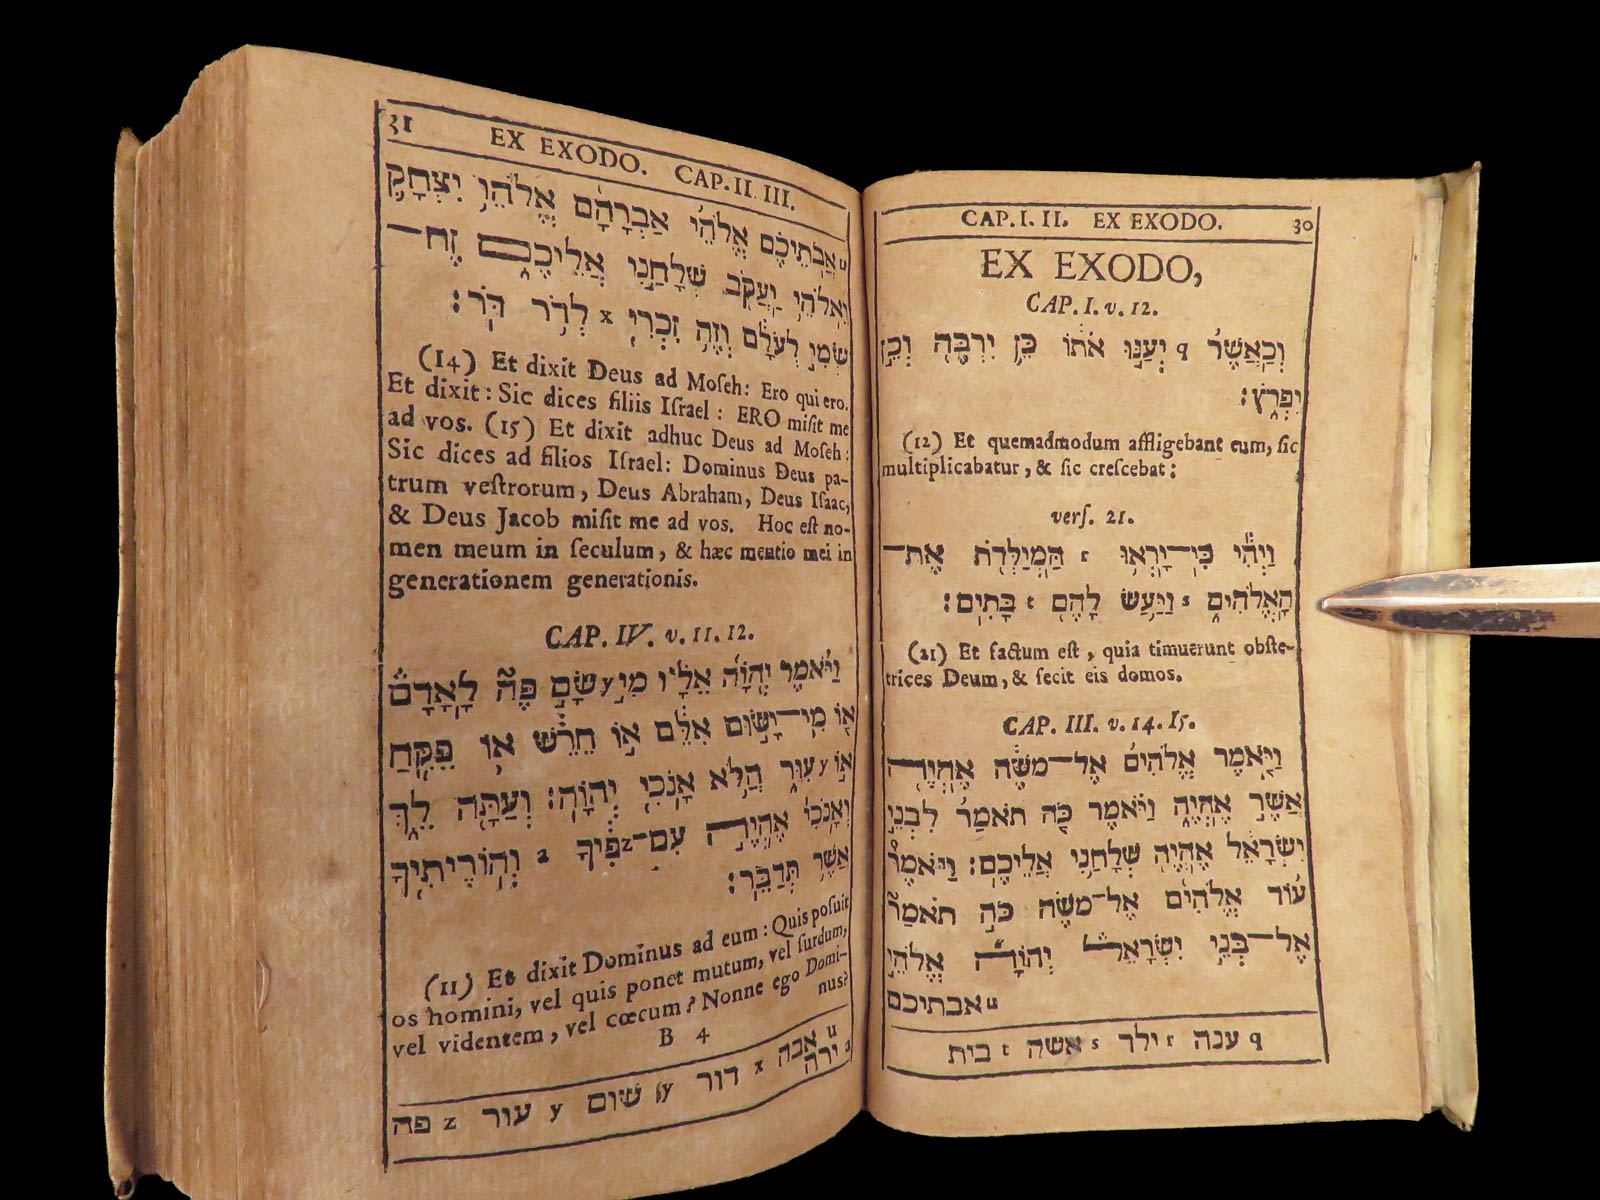 CAP. I. II. EX EXODO. 30
EX EXODO,
CAP. I. v. 12.
וְכַאֲשֶׁר q יְעַנּוּ אֹתוֹ כֵּן יִרְבֶּה וְכֵן
יִפְרֹץ׃
(12) Et quemadmodum affligebant eum, ſic
multiplicabatur, & ſic creſcebat:
verſ. 21.
וַיְהִי כִּי־יָרְאוּ r הַמְיַלְּדֹת אֶת־
הָאֱלֹהִים s וַיַּעַשׂ לָהֶם t בָּתִּים׃
(21) Et factum eſt, quia timuerunt obſte-
trices Deum, & fecit eis domos.
CAP. III. v. 14. 15.
וַיֹּאמֶר אֱלֹהִים אֶל־מֹשֶׁה אֶהְיֶה
אֲשֶׁר אֶהְיֶה וַיֹּאמֶר כֹּה תֹאמַר לִבְנֵי
יִשְׂרָאֵל אֶהְיֶה שְׁלָחַנִי אֲלֵיכֶם׃ וַיֹּאמֶר
עוֹד אֱלֹהִים אֶל־מֹשֶׁה כֹּה תֹאמַר
אֶל־בְּנֵי יִשְׂרָאֵל יְהוָֹה אֱלֹהֵי
u אבתיכם
q ענה r ילד s אשה t בית
31 EX EXODO. CAP. II III.
u אֲבֹתֵיכֶם אֱלֹהֵי אַבְרָהָם אֱלֹהֵי יִצְחָק
וֵאלֹהֵי יַעֲקֹב שְׁלָחַנִי אֲלֵיכֶם זֶה־
שְּׁמִי לְעֹלָם וְזֶה זִכְרִי x לְדֹר דֹּר׃
(14) Et dixit Deus ad Moſeh: Ero qui ero.
Et dixit: Sic dices filiis Iſrael: ERO miſit me
ad vos. (15) Et dixit adhuc Deus ad Moſeh:
Sic dices ad filios Iſrael: Dominus Deus pa-
trum veſtrorum, Deus Abraham, Deus Iſaac,
& Deus Jacob miſit me ad vos. Hoc eſt no-
men meum in ſeculum, & hæc mentio mei in
generationem generationis.
CAP. IV. v. 11. 12.
וַיֹּאמֶר יְהוָֹה אֵלָיו מִי y שָׂם פֶּה לָאָדָם
אוֹ מִי־יָשׂוּם אִלֵּם אוֹ חֵרֵשׁ אוֹ פִקֵּחַ
אוֹ y עִוֵּר הֲלֹא אָנֹכִי יְהוָֹה׃ וְעַתָּה לֵךְ
וְאָנֹכִי אֶהְיֶה עִם־z פִּיךָ a וְהוֹרֵיתִיךָ
אֲשֶׁר תְּדַבֵּר׃
(11) Et dixit Dominus ad eum: Quis poſuit
os homini, vel quis ponet mutum, vel ſurdum,
vel videntem, vel cœcum? Nonne ego Domi-
nus?
B 4
u אבה x דור y שום y עור z פה
a ירה